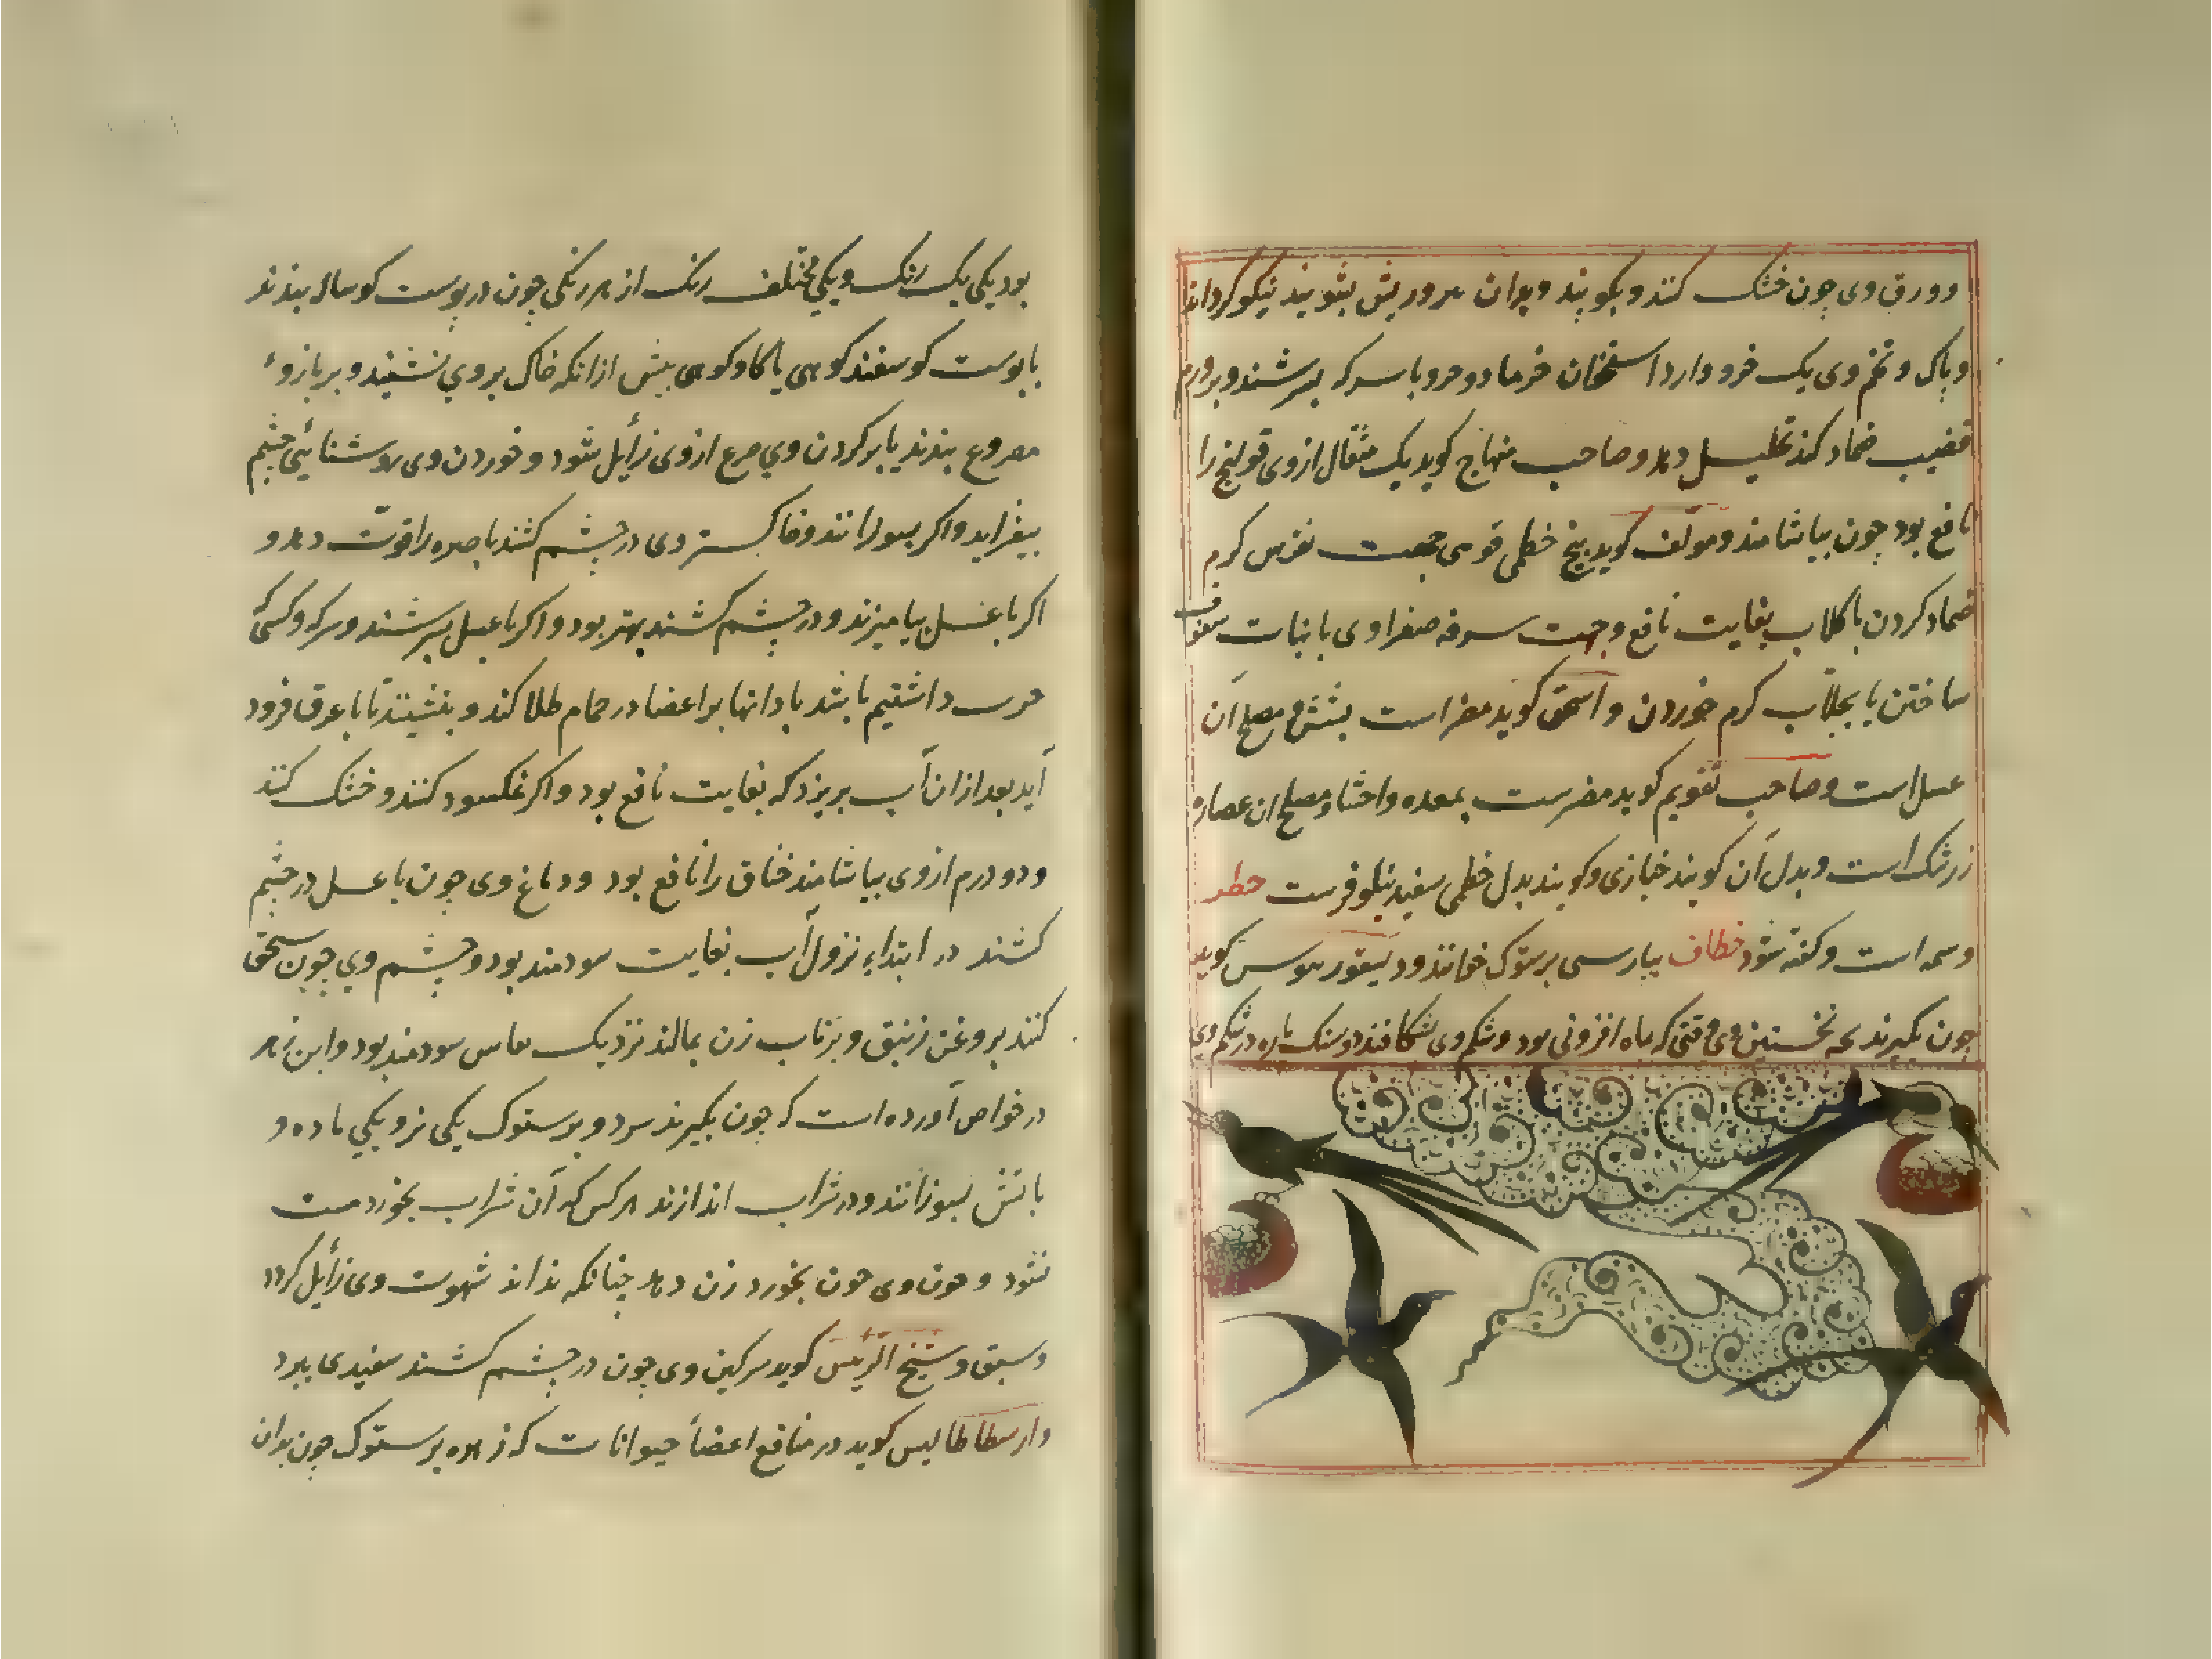 و ورق وی چون خشک کنند و بکوبند و بدان سر و ریش بشویند نیکو کرداند
و پاک و تخم وی یک خرو وارد استخوان خرما دو خرو با سرکه بسرشند و بر ورم
قضیب ضماد کنند تحلیل دهد و صاحب منهاج کوید یک مثقال از وی قولنج را
نافع بود چون بیاشامند و مولف کوید بیخ خطمی قوسی جهت نقرس کرم
ضماد کردن با کلاب بغایت نافع و جهت سرفه صفراوی با نبات سفوف
ساختن یا بجلاب کرم خوردن و اسحق کوید مضر است بشش و مصلح آن
عسل است و صاحب تقویم کوید مضرست بمعده و احشا و مصلح ان عصاره
زرشک است و بدل آن کویند خبازی و کویند بدل خطمی سفید نیلوفرست خطر
وسمه است و کفته شود خطاف بپارسی پرستوک خوانند و کوید
چون بکیرند بچه نخستین وی وقتی که ماه افزونی بود و شکم وی شکافند دو سنک پاره در شکم وی
بود یکی یک رنک و یکی مختلف رنک از هر رنکی چون در پوست کوساله بندند
یا پوست کوسفند کوهی یا کاو کوهی پیش از انکه خاک بر وی نشیند و بر بازوء
مصروع بندند یا بر کردن وی صرع از وی زایل شود و خوردن وی روشنائی چشم
بیفزاید و اکر بسوزانند و خاکستر وی در چشم کشند باصره را قوت دهد و
اکر با عسل بیامیزند و در چشم کشند بهتر بود و اکر با عسل بسرشند و سرکه و کسی که
داشتیم باشد بادانها بر اعضا در حمام طلا کند و بنشیند تا با عرق فرود
آید بعد از ان آب بریزد که بغایت نافع بود و اکر نمکسود کنند و خشک کنند
و دو درم از وی بیاشامند خناق را نافع بود و دماغ وی چون با عسل در چشم
کشند در ابتداء نزول آب بغایت سودمند بود و چشم وی چون سحق
کنند بروغن زنبق و بر ناب زن بمالند نزدیک نفاس سودمند بود و ابن زهر
در خواص آورده است که چون بکیرند سر دو پرستوک یکی نر و یکی ماده و
باتش بسوزانند و در شراب اندازند هر کس که آن شراب بخورد مست
نشود و خون وی چون بخورد زن دهد چنانکه نداند شهوت وی زایل کردد
و سبق و شیخ الرئیس کوید سرکین وی چون در چشم کشند سفیدی ببرد
و ارسطاطالیس کوید در منافع اعضاء حیوانات که زهره پرستوک چون بدان